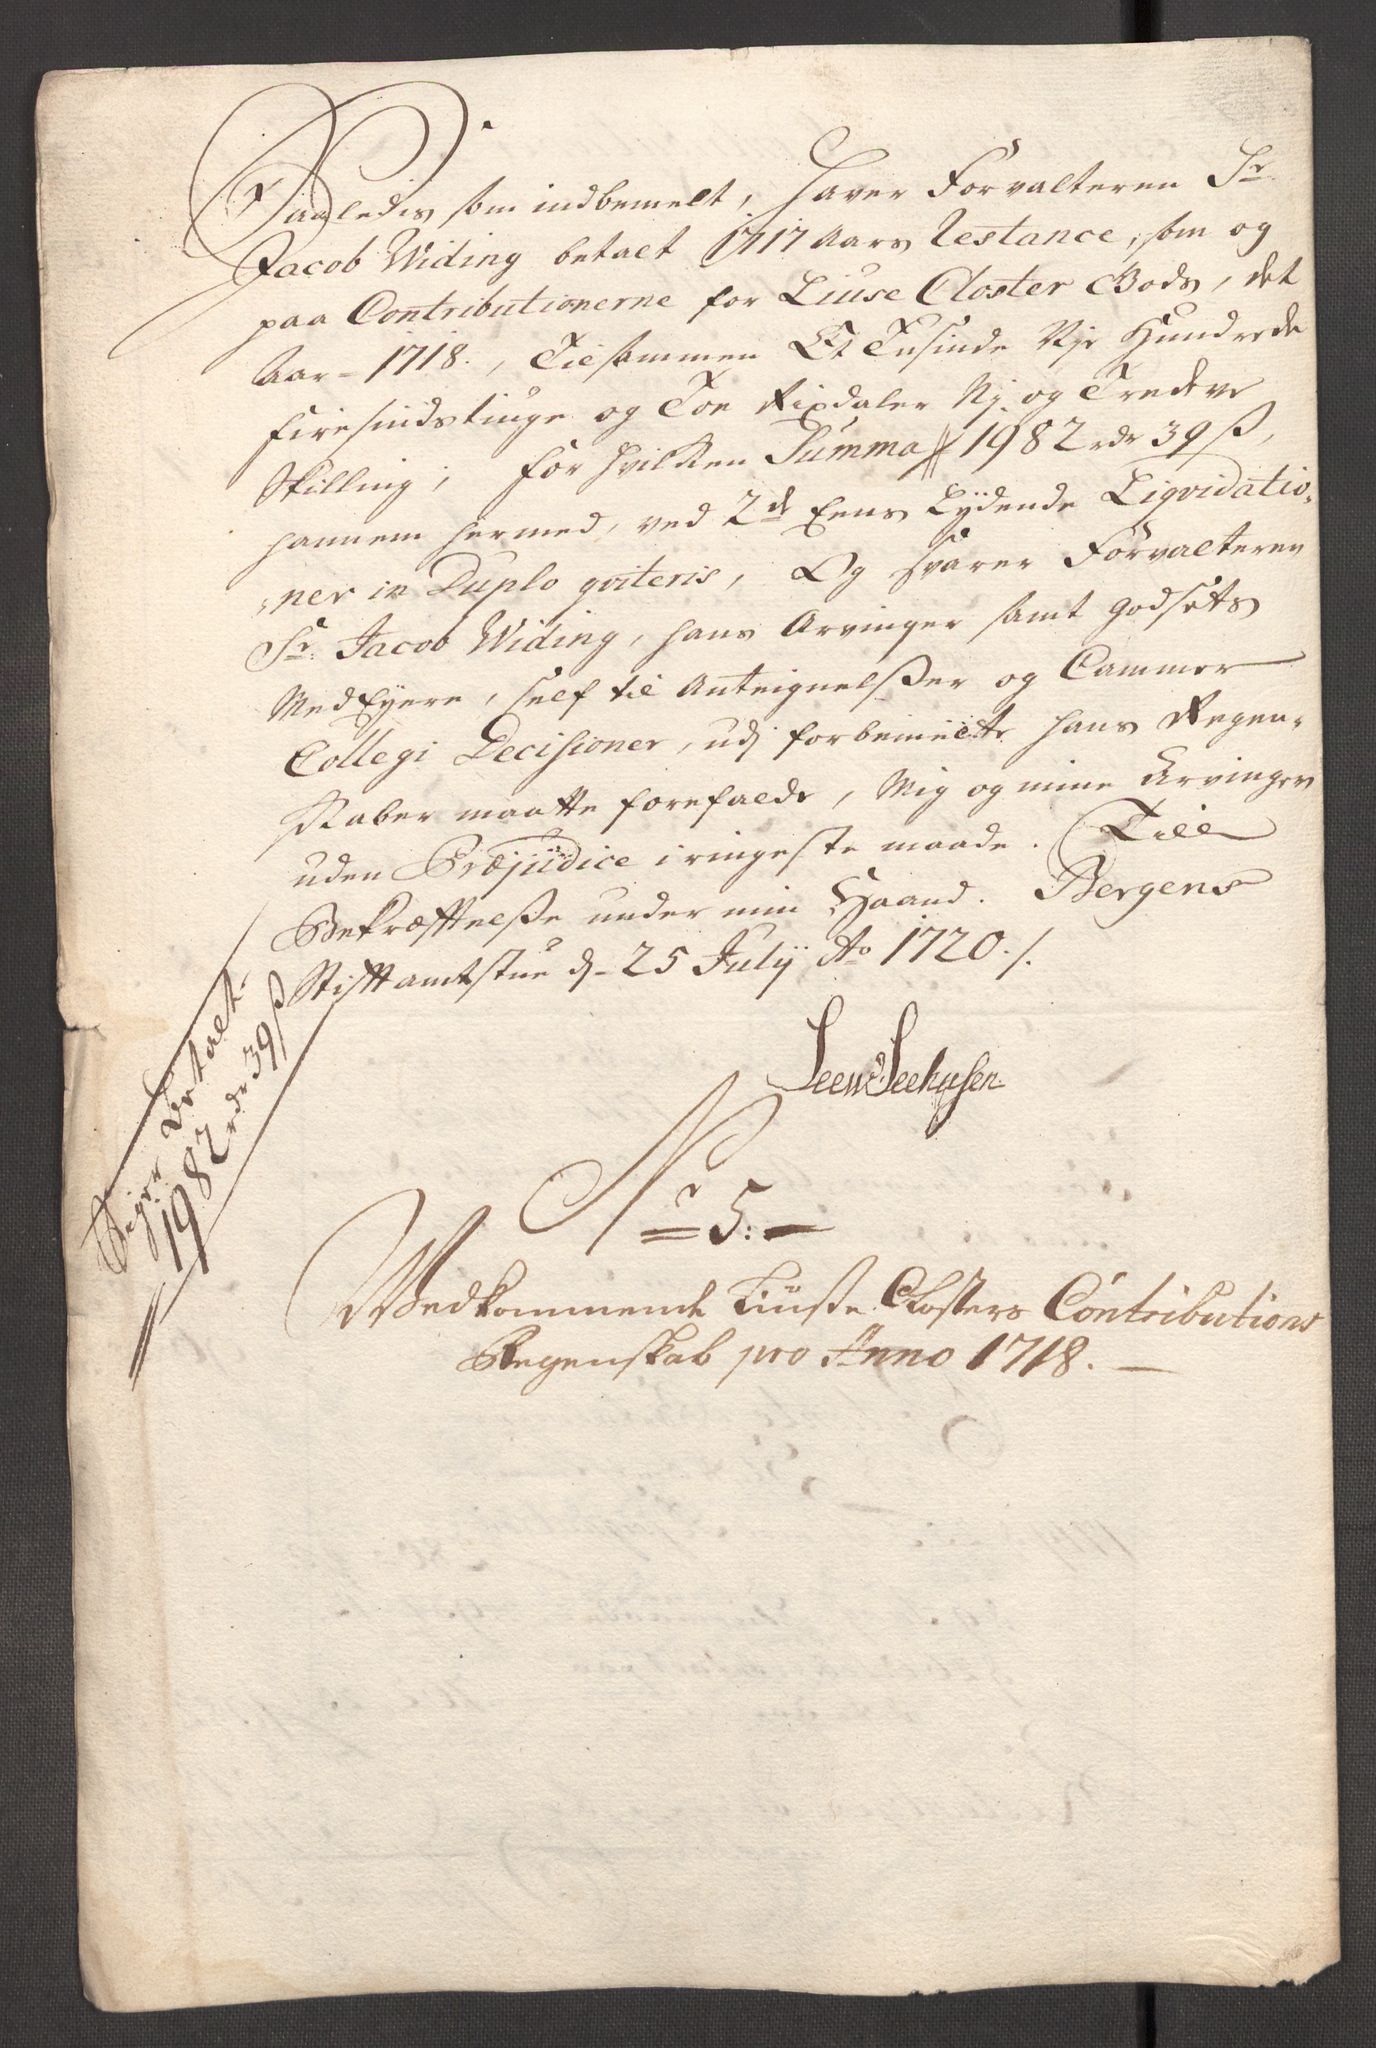 Saaledis som indbemelt, haver Forvalteren Sr
Jacob Widing betalt 1717 Aars Restance, som og
paa Contributionerne for Liuse Closter Gods, det
Aar - 1718., Tilsammen Et Tusinde Nje Hundrede
firesindstiuge og Toe Rixdaler Nj og Tredeve
Skilling; for hvilken Summa // 1982 rdr 39 ß,
hannem hermed, ved 2de Eens Lydende Liqvidatio-
ner in Duplo qviteris, Og svarer Forvalteren
Sr. Jacob Widing, hans Arvinger samt Godsets
MedEyere, self til Anteignelßer og Cammer
Collegi Decisioner, udj forbemelte hans Regen-
skaber maatte forefalde, Mig og mine Arvinger
uden Præjudice i ringeste maade. Till
Bekræftelße under min Haand. Bergens
Stiftamtstue d. 25 July Ao 1720 ./.
Seew Seehusen
Siger Betalt
1982 rdr 39 ß
Nr 5.
Vedkommende Liuße Closters Contributions
Regenskab pro Anno 1718.